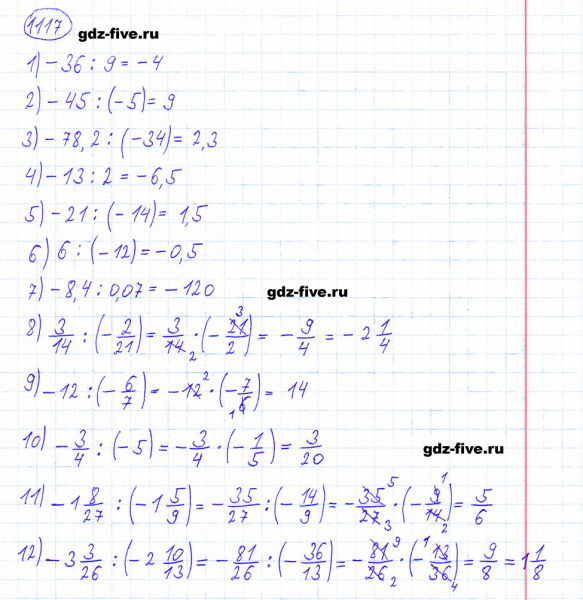 1117 gdz-five.ru
1) -36 : 9 = -4
2) -45 : (-5) = 9
3) -78,2 : (-34) = 2,3
4) -13 : 2 = -6,5
5) -21 : (-14) = 1,5
6) 6 : (-12) = -0,5
7) -8,4 : 0,07 = -120
gdz-five.ru
8) 3/14 : (-2/21) = 3/14 2 · (-21 3/2) = -9/4 = -2 1/4
9) -12 : (-6/7) = -12 2 · (-7/6 1) = 14
10) -3/4 : (-5) = -3/4 · (-1/5) = 3/20
gdz-five.ru
11) -1 8/27 : (-1 5/9) = -35/27 : (-14/9) = -35 5/27 3 · (-9 1/14 2) = 5/6
12) -3 3/26 : (-2 10/13) = -81/26 : (-36/13) = -81 9/26 2 · (-13 1/36 4) = 9/8 = 1 1/8